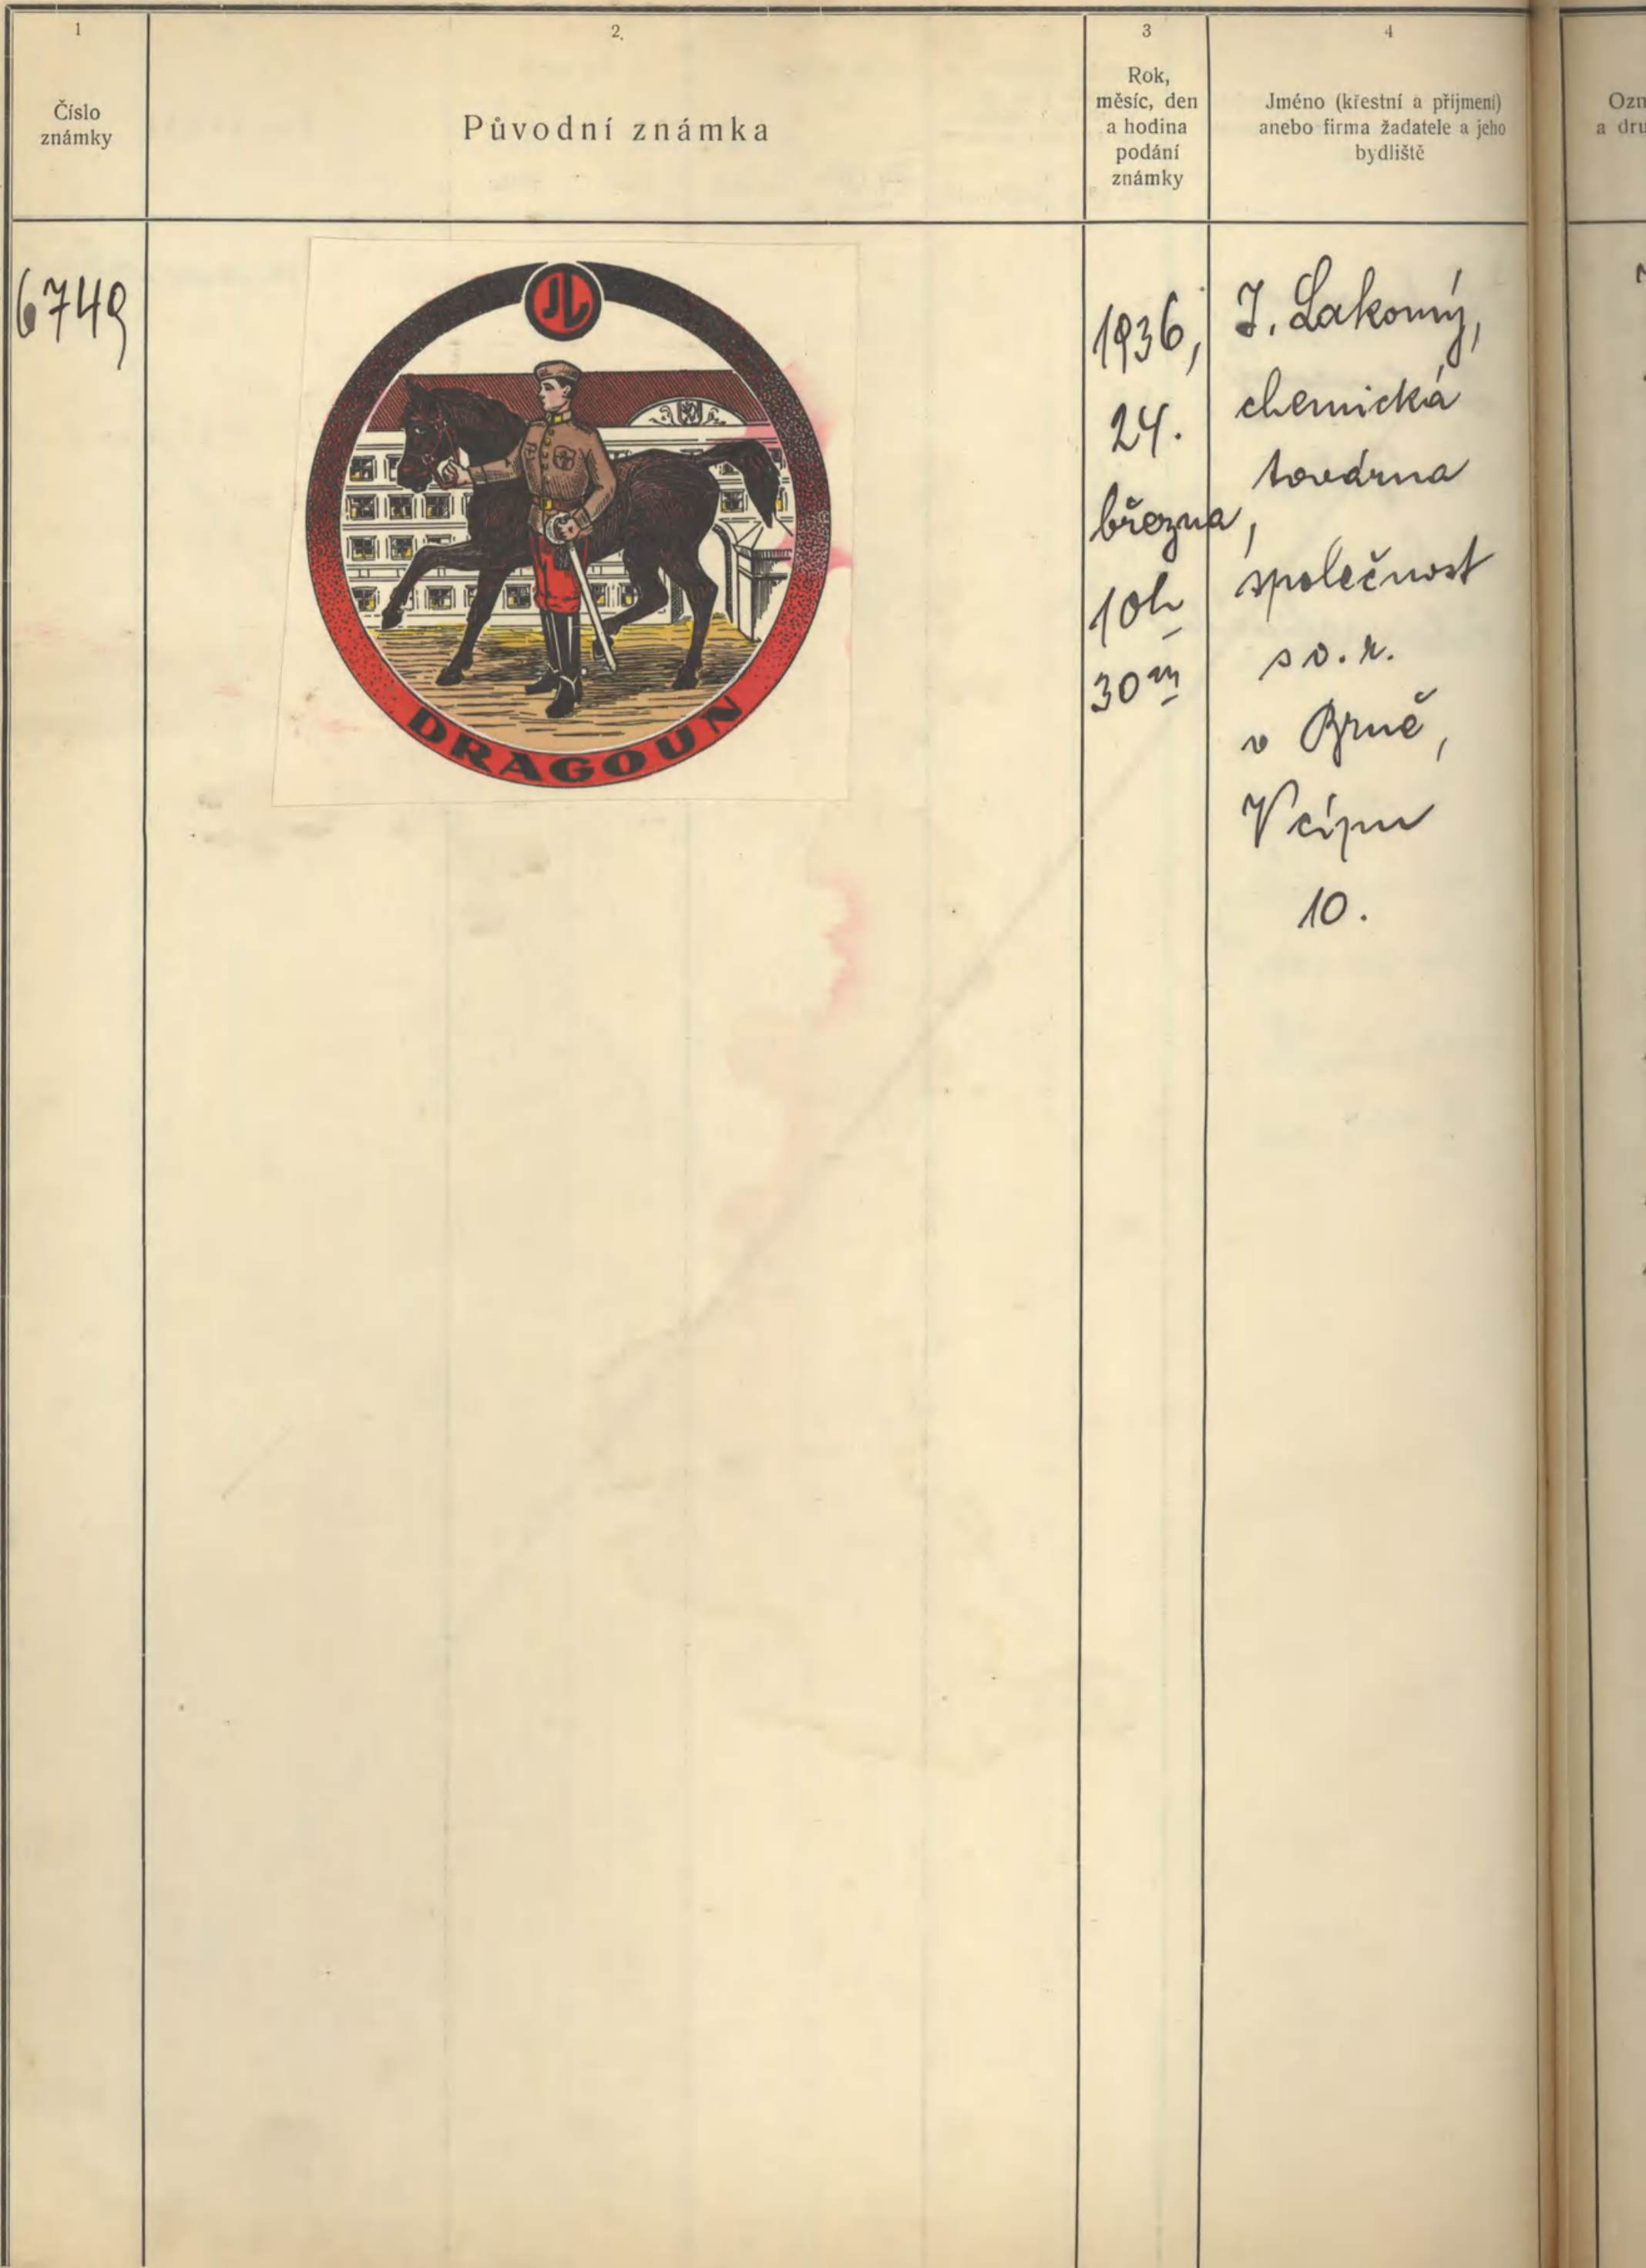 1
2.
3
4
Číslo
známky
Původní známka
Rok,
měsíc, den
a hodina
podání
známky
Jméno (křestní a příjmení)
anebo firma žadatele a jeho
bydliště
Ozn
a dru
6749
JL
DRAGOUN
1936,
24.
března,
10h
30m
J. Lakomý,
chemická
továrna
společnost
s o. r.
v Brně,
V cípu
10.